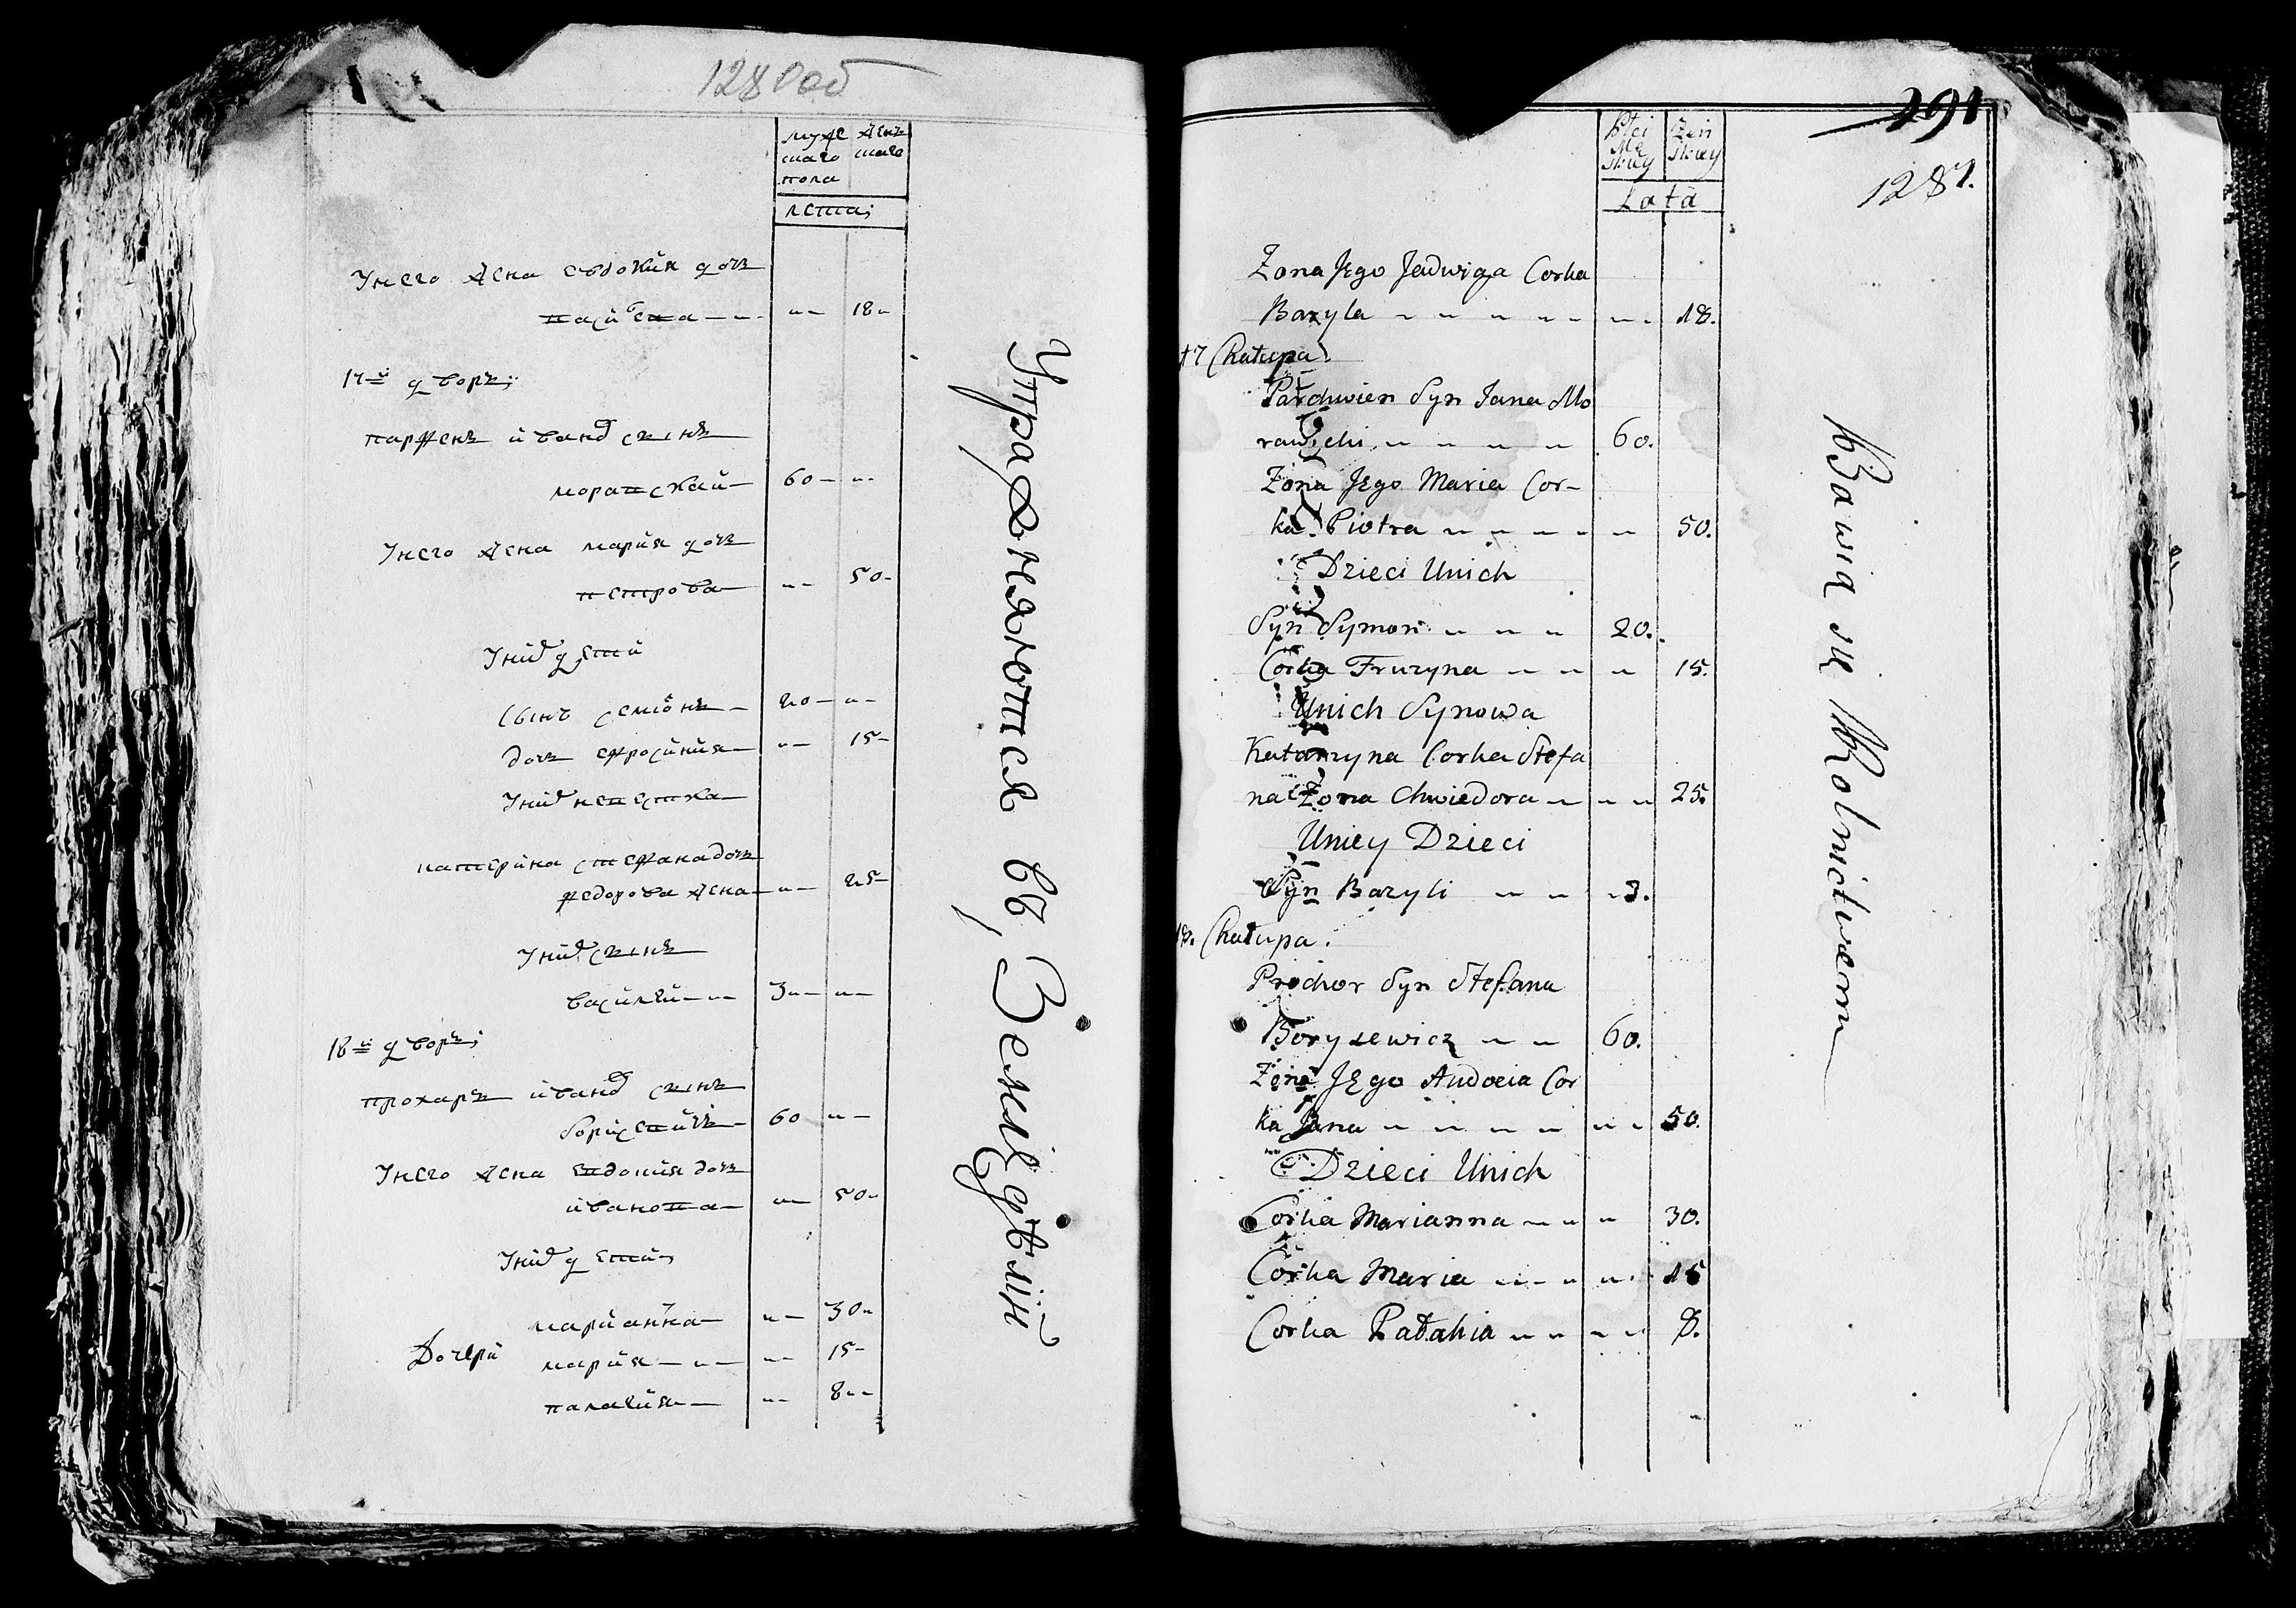 1280об
мужс женъ
каго каго
пола
лета;
Унего жена евдокия дочъ
василева 18
17й дворъ;
парфенъ иванов сынъ
моравский 60
Унего жена мария дочъ
петрова 50
Уних дети
Сынъ семионъ 20
дочъ ефросиния 15
Уних невестка
катерина стефана дочъ
федорова жена 25
Уних сынъ
василей 3
18й дворъ;
прохаръ иванов сынъ
борисевичъ 60
Унего жена евдокия дочъ
иванова 50
Уних дети
марианна 30
Дочери мария 15
палагия 8
Упражняются въ Земледѣлій
291
1281.
Płci Żeń
Mę skiey
skiey
Lata
Zona Jego Jadwiga Corka
Bazyla 18.
17 Chałupa.
Parchwien Syn Jana Mo
rawski 60.
Zona Jego Maria Cor-
ka Piotra 50.
Dzieci Unich
Syn Symon 20.
Corka Fruzyna 15.
Unich Synowa
Katarzyna Corka Stefa
na Zona Chwiedora 25.
Uniey Dzieci
Syn Bazyli 3.
18. Chałupa.
Prochor Syn Stefana
Borysewicz 60.
Zona Jego Audocia Cor
ka Jana 50.
Dzieci Unich
Corka Marianna 30.
Corka Maria 15
Corka Pałahia 8.
Bawią się Rolnictwem